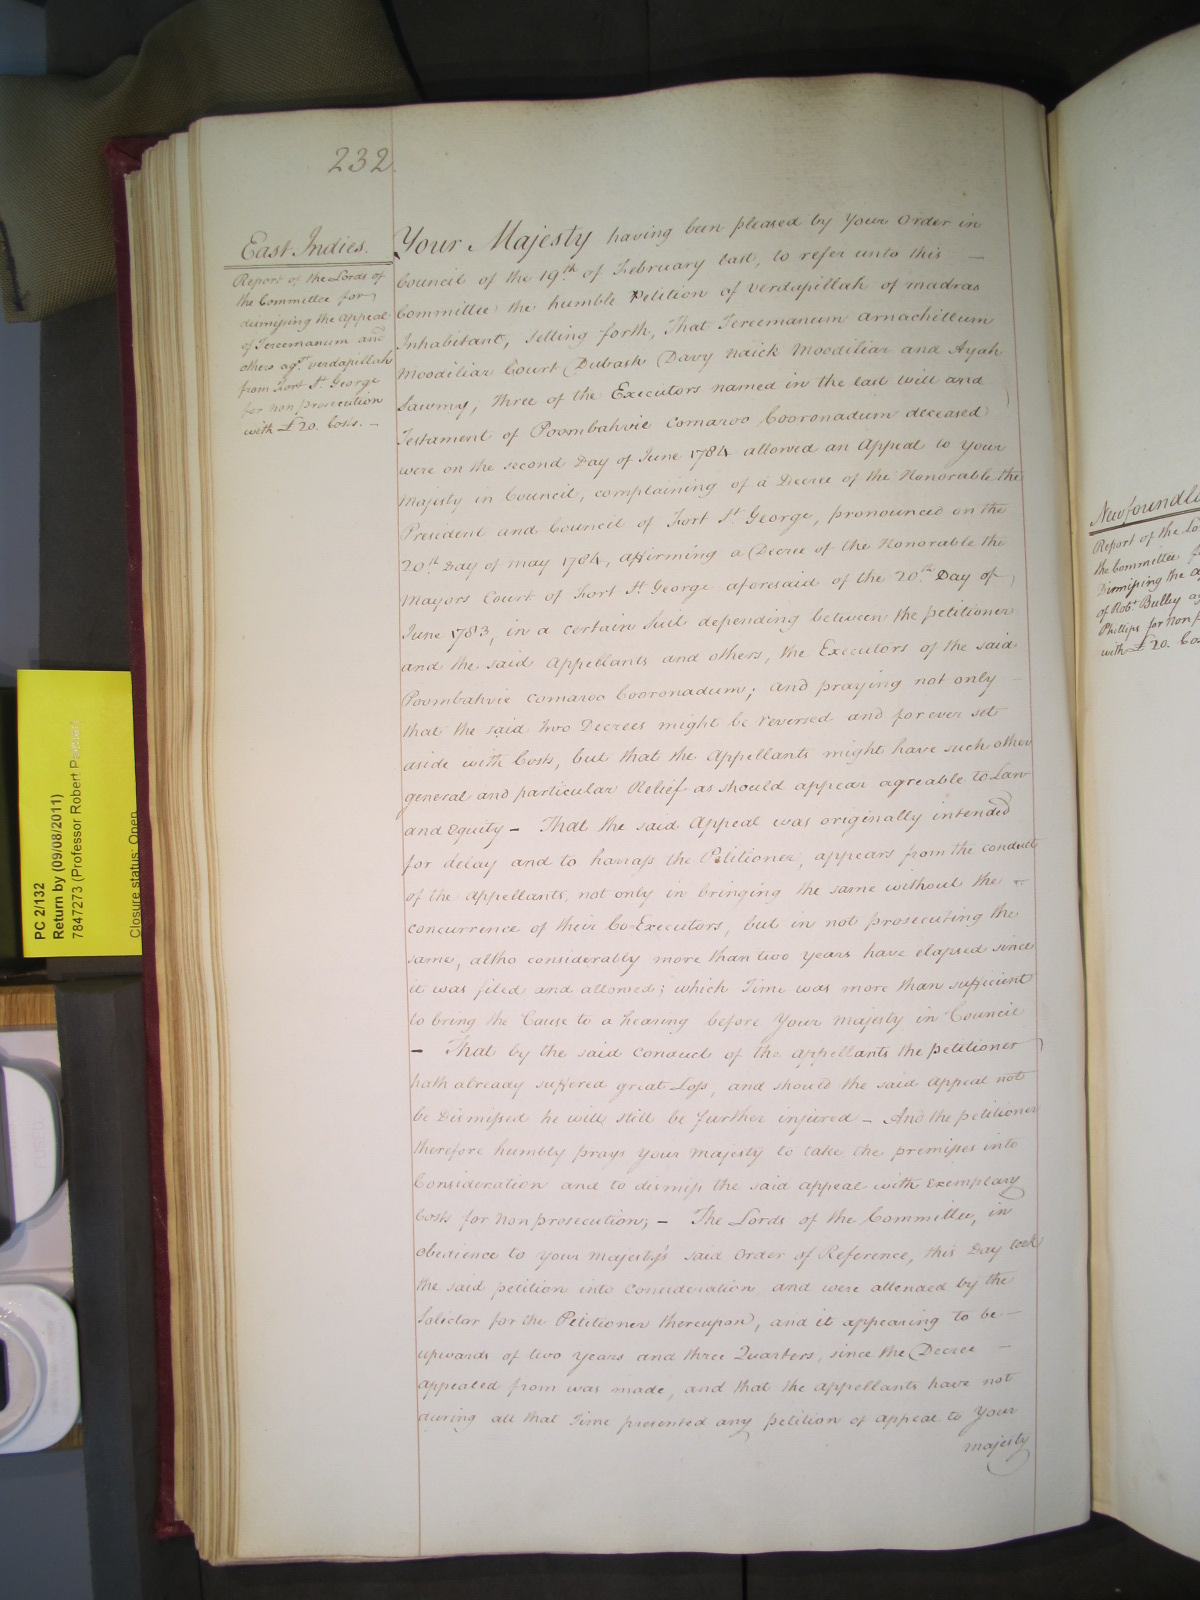 232
East Indies.
Report of the Lords of
the Committee for
dismissing the Appeal
of Tercemanum and
others agt. verdapillah
from Fort St. George
for non prosecution
with £20. Costs. –
Your Majesty having been pleased by Your Order in
Council of the 19th. of February last, to refer unto this –
Committee the humble Petition of verdapillah of madras
Inhabitant, setting forth, That Tercemanum arnachellum
Moodiliar Court Dubash Davy naick Moodiliar and Ayah
Sawmy, three of the Executors named in the last will and
Testament of Poombahvie Comaroo Cooronadum deceased
were on the second Day of June 1784 allowed an Appeal to Your
Majesty in Council, complaining of a Decree of the Honorable the
President and Council of Fort St. George, pronounced on the
20th. Day of may 1784, affirming a Decree of the Honorable the
Mayors Court of Fort St. George aforesaid of the 20th. Day of
June 1783, in a certain Suit depending between the petitioner
and the said Appellants and others, the Executors of the said
Poombahvie Comaroo Cooronadum; and praying not only –
that the said two Decrees might be reversed and for ever set
aside with Costs, but that the Appellants might have such other
general and particular Relief as should appear agreable to Law
and Equity – That the said Appeal was originally intended
for delay and to harrass the Petitioner, appears from the conduct
of the Appellants, not only in bringing the same without the
concurrence of their Co=Executors, but in not prosecuting the
same, altho considerably more than two years have elapsed since
it was filed and allowed; which Time was more than sufficient
to bring the Cause to a hearing before Your Majesty in Council
– That by the said Conduct of the appellants the petitioner
hath already suffered great Loss, and should the said Appeal not
be Dismissed he will still be further injured – And the petitioner
therefore humbly prays Your Majesty to take the premisses into
Consideration and to dismiss the said Appeal with Exemplary
Costs for non prosecution; – The Lords of the Committee, in
obedience to Your Majesty's said Order of Reference, this Day took
the said petition into Consideration and were attended by the
Solicitor for the Petitioner thereupon, and it appearing to be –
upwards of two years and three Quarters, since the Decree –
appealed from was made, and that the appellants have not
during all that Time presented any petition of appeal to Your
Majesty
Newfoundl
Report of the Lo
the Committee f
Dismissing the a
of Robt. Bulley ag
Phillips for non p
with £20. Co
PC 2/132
Return by (09/08/2011)
7847273 (Professor Robert
Closure status: Open